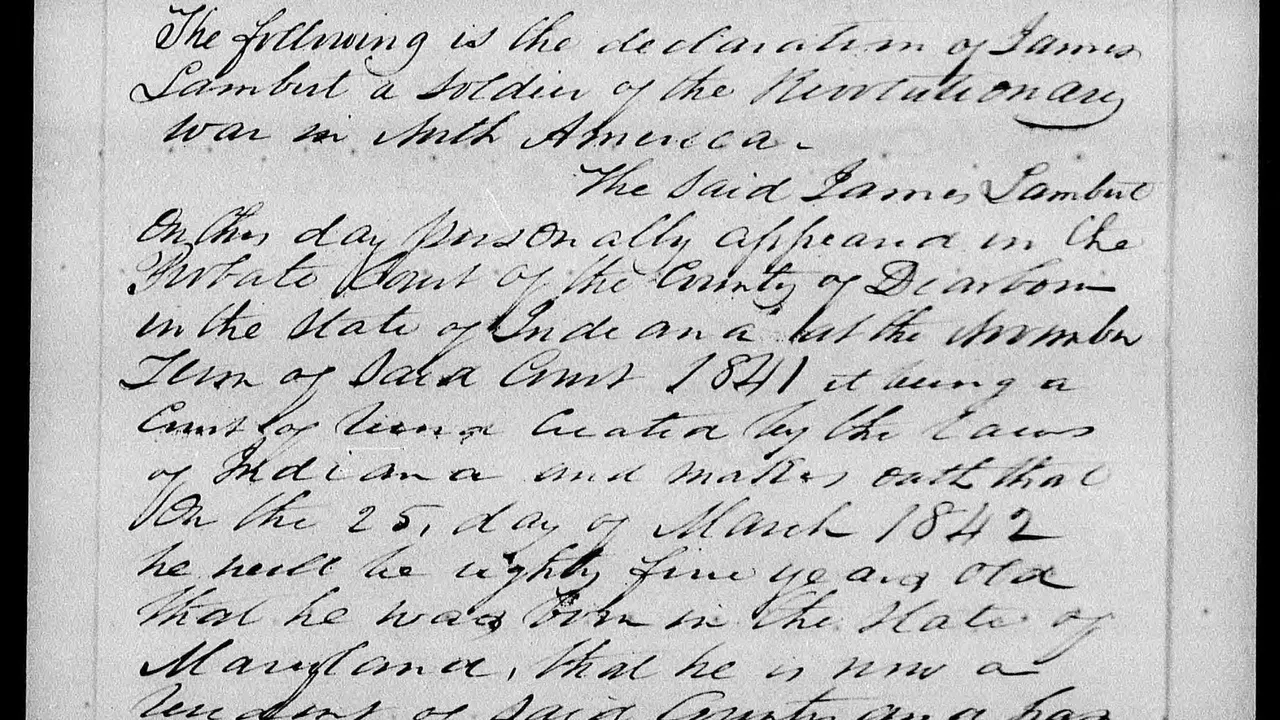 The following is the declaration of James
Lambert a soldier of the Revolutionary
war in North America.
The said James Lambert
On this day personally appeared in the
Probate Court of the County of Dearborn
in the State of Indiana at the November
Term of said Court 1841 it being a
Court of Record created by the Laws
of Indiana and makes oath that
On the 25, day of March 1842
he will be eighty five years old
that he was born in the State of
Maryland, that he is now a
resident of said County and has